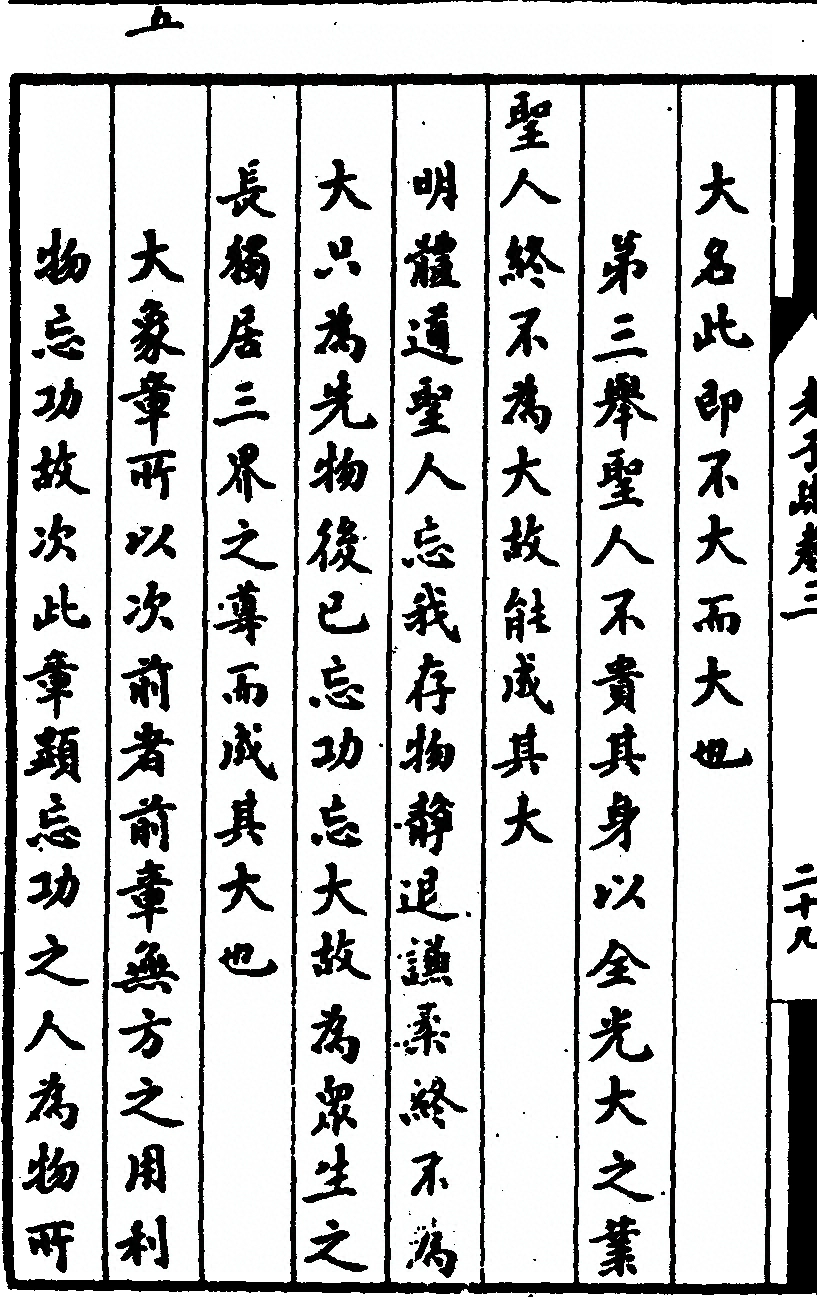 老子疏卷三
二十九
大名此即不大而大也
第三舉聖人不貴其身以全光大之業
聖人終不為大故能成其大
明體道聖人忘我存物靜退謙柔終不為
大只為先物後已忘功忘大故為眾生之
長獨居三界之尊而成其大也
大象章所以次前者前章無方之用利
物忘功故次此章顯忘功之人為物所